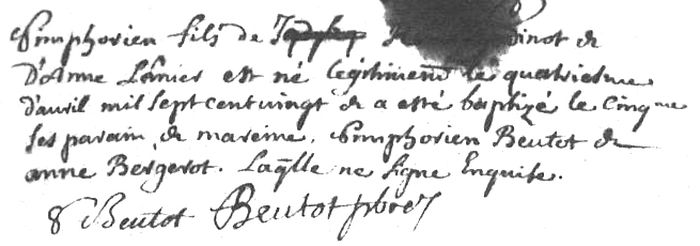 Simphorien fils de inot &
D'Anne Lanier est né legitimemt le quatriesme
d'auril mil sept cent uingt & a esté baptizé le cinqme
ses parain & mareine, Simphorien Beutot &
anne Bergerot. Laqlle ne signe Enquise.
S Beutot Beutot pbre